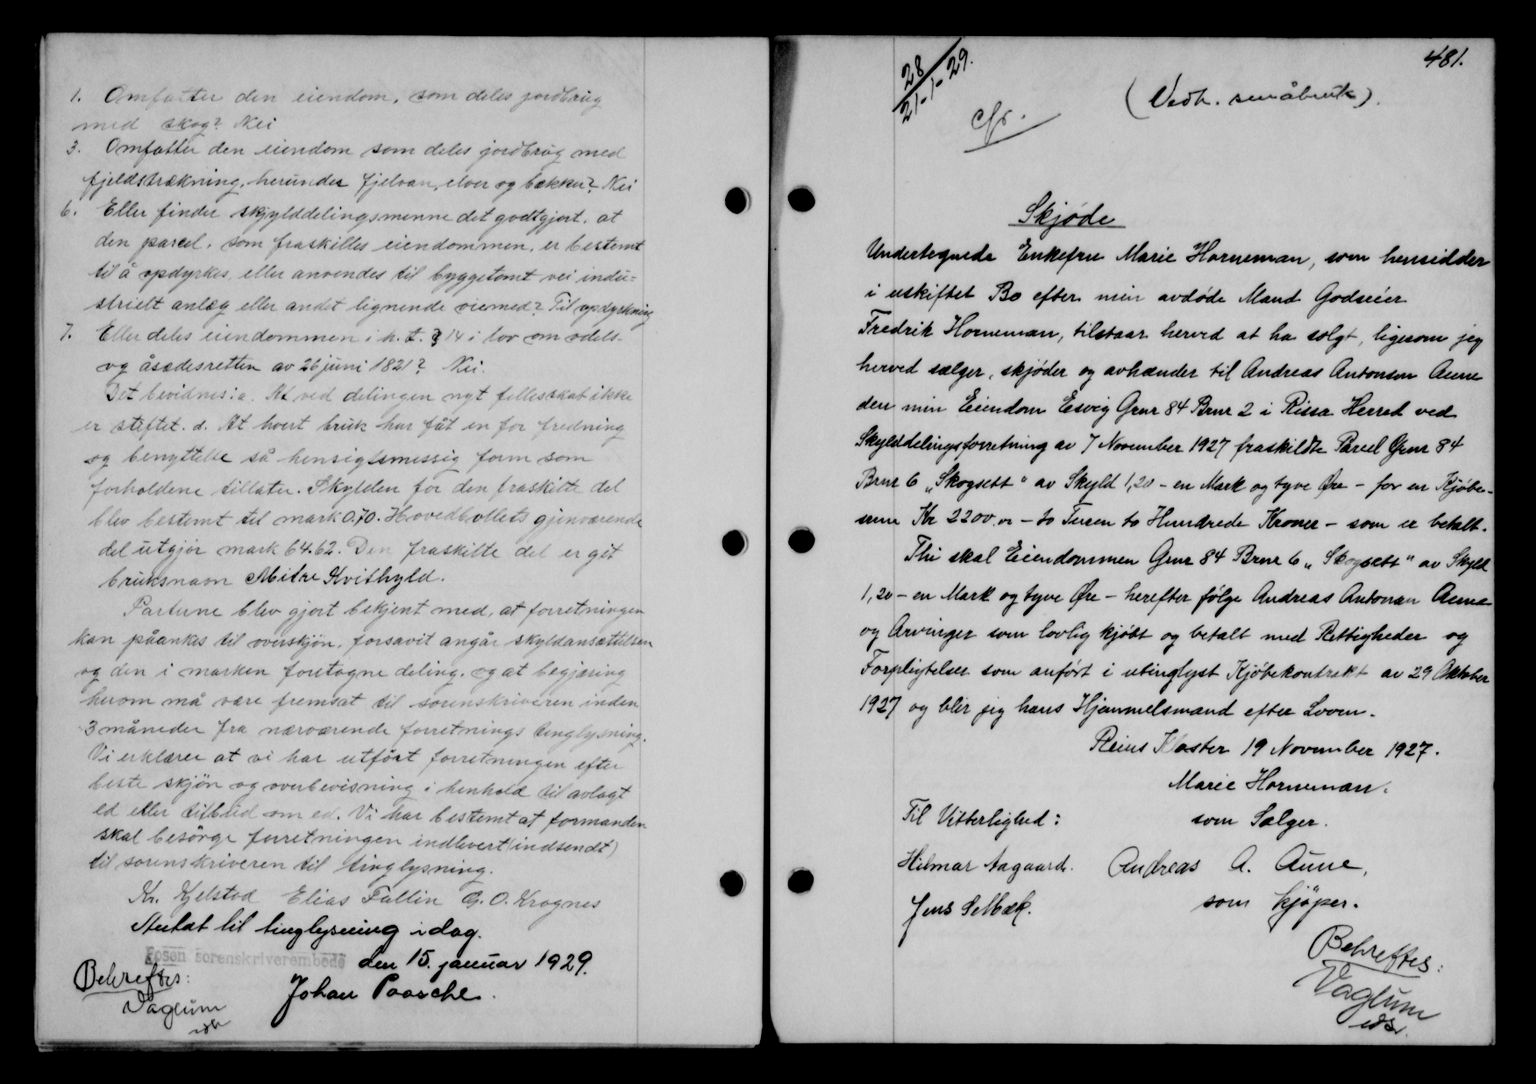 1. Omfatter den eiendom, som deles jordbrug
med skog? Nei
3. Omfatter den eiendom som deles jordbrug med
fjeldstrækning, herunder fjelvan, elver og bækker? Nei
6. Eller finder skjylddelingsmenne det godtgjort, at
den parcel, som fraskilles eiendommen, er bestemt
til å opdyrkes eller anvendes til byggetomt vei indu-
strielt anlæg eller andet lignende øiemed? Til opdyrkning
7. Eller deles eiendommen i h. t. § 14 i lov om odels-
og åsædesretten av 26 juni 1821? Nei.
Det bevidnes: a. At ved delingen nyt fellesskat ikke
er stiftet. d. At hvert bruk har fåt en for fredning
og benyttelse så hensigtsmessig form som
forholdene tillater. Skylden for den fraskilte del
blev bestemt til mark 0.70. Hovedbollets gjenværende
del utgjør mark 6462. Den fraskilte del er git
bruksnavn Mitre Kvithyld.
Partene blev gjort bekjent med, at forretningen
kan påankes til overskjøn, forsavit angår skyldansættelsen
og den i marken foretagne deling, og at begjæring
herom må være fremsat til sorenskriveren inden
3 måneder fra nærværende forretnings tinglysning.
Vi erklærer at vi har utført forretningen efter
beste skjøn og overbevisning i henhold til avlagt
ed eller tilbud om ed. Vi har bestemt at formanden
skal besørge forretningen indlevert (indsendt)
til sorenskriveren til tinglysning.
Kr. Kjelstad Elias Fallin G. O. Krognes
Mottat til tinglysning idag.
Fosen sorenskriverembede den 15. januar 1929.
Johan Paasche.
Bekreftes:
Vaglum
481.
28/21-1-29.
cfr.
(Vedk. småbruk).
Skjøde
Undertegnede Enkefru Marie Horneman, som hensidder
i uskiftet Bo efter min avdøde Mand Godseier
Fredrik Horneman, tilstaar herved at ha solgt, ligesom jeg
herved sælger, skjøder og avhænder til Andreas Antonsen Aune
den min Eiendom Esvig Grnr 84 Brnr 2 i Rissa Herred ved
Skylddelingsforretning av 7 November 1927 fraskildte Parcel Grnr 84
Brnr 6 „Skogsett" av Skyld 1,20 - en Mark og tyve Øre - for en Kjøbe-
sum Kr 2200,00 - to Tusen to Hundrede Kroner - som er betalt.
Thi skal Eiendommen Grnr 84 Brnr 6 „Skogsett" av Skyld
1,20 - en Mark og tyve Øre - herefter følge Andreas Antonsen Aune
og Arvinger som lovlig kjøbt og betalt med Rettigheder og
Forpligtelser som anført i utinglyst Kjøbekontrakt av 29 Oktober
1927 og blir jeg hans Hjemmelsmand efter Loven.
Reins Kloster 19 November 1927.
Marie Horneman.
Til Vitterlighed: som Sælger.
Hilmar Aagaard. Andreas A. Aune,
Jens Selbæk. som kjøper.
Bekreftes:
Vaglum